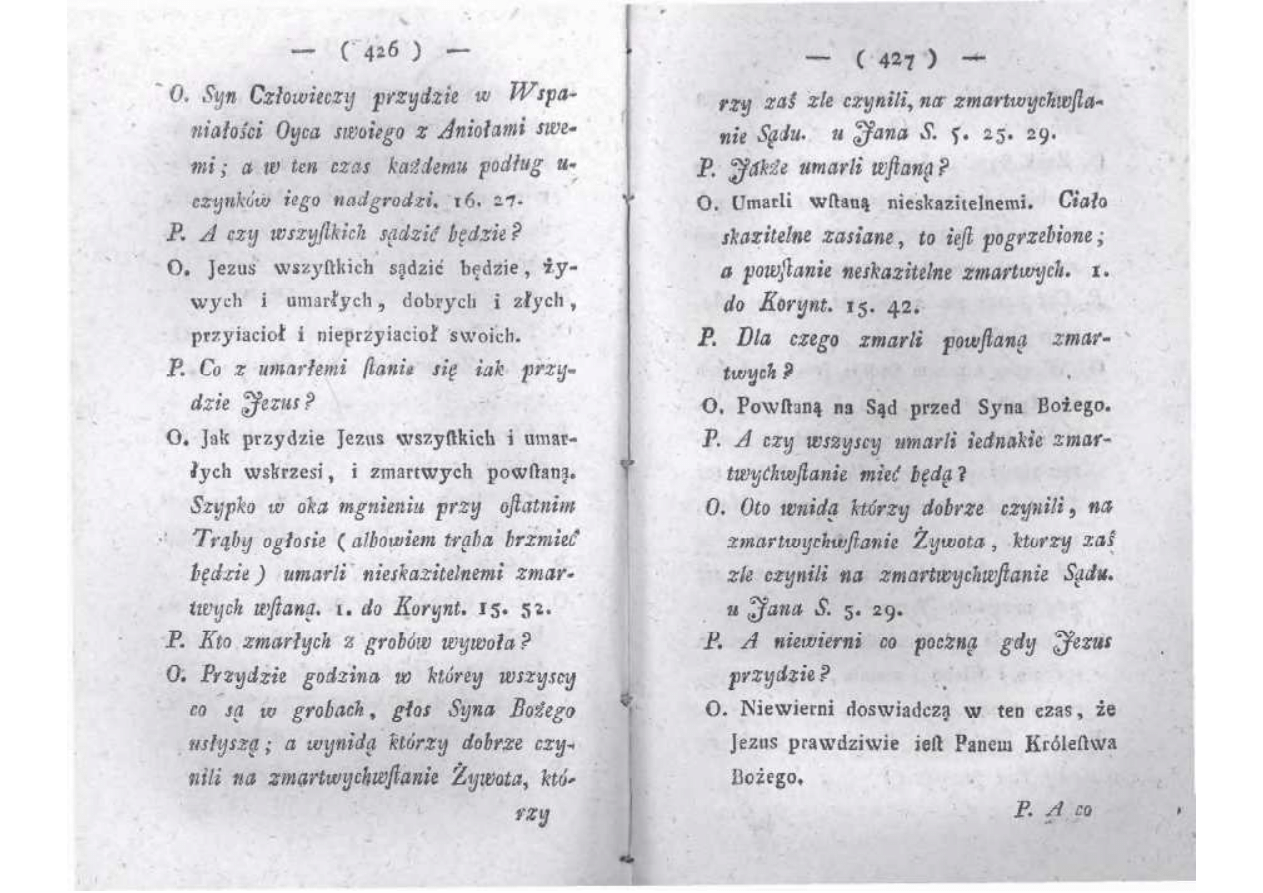 — ( 426 ) —
O. Syn Człowieczy przydzie w Wspa-
niałości Oyca swoiego z Aniołami swe-
mi; a w ten czas każdemu podług u-
czynków iego nadgrodzi. 16. 27.
P. A czy wszyſtkich sądzić będzie?
O. Jezus wszyſtkich sądzić będzie, ży-
wych i umarłych, dobrych i złych,
przyiacioł i nieprzyiacioł swoich.
P. Co z umarłemi ſtanie się iak przy-
dzie Jezus?
O. Jak przydzie Jezus wszyſtkich i umar-
łych wskrzesi, i zmartwych powſtaną.
Szypko w oka mgnieniu przy oſtatnim
Trąby ogłosie (albowiem trąba brzmieć
będzie) umarli nieskazitelnemi zmar-
twych wſtaną. 1. do Korynt. 15. 52.
P. Kto zmarłych z grobów wywoła?
O. Przydzie godzina w którey wszyscy
co są w grobach, głos Syna Bożego
usłyszą; a wynidą którzy dobrze czy-
nili na zmartwychwſtanie Żywota, któ-
rzy
— ( 427 ) —
rzy zaś zle czynili, na zmartwychwſta-
nie Sądu. u Jana S. 5. 25. 29.
P. Jákże umarli wſtaną?
O. Umarli wſtaną nieskazitelnemi. Ciało
skazitelne zasiane, to ieſt pogrzebione;
a powſtanie neskazitelne zmartwych. 1.
do Korynt. 15. 42.
P. Dla czego zmarli powſtaną zmar-
twych?
O. Powſtaną na Sąd przed Syna Bożego.
P. A czy wszyscy umarli iednakie zmar-
twychwſtanie mieć będą?
O. Oto wnidą którzy dobrze czynili, na
zmartwychwſtanie Żywota, ktorzy zaś
zle czynili na zmartwychwſtanie Sądu.
u Jana S. 5. 29.
P. A niewierni co poczną gdy Jezus
przydzie?
O. Niewierni doswiadczą w ten czas, że
Jezus prawdziwie ieſt Panem Króleſtwa
Bożego.
P. A co